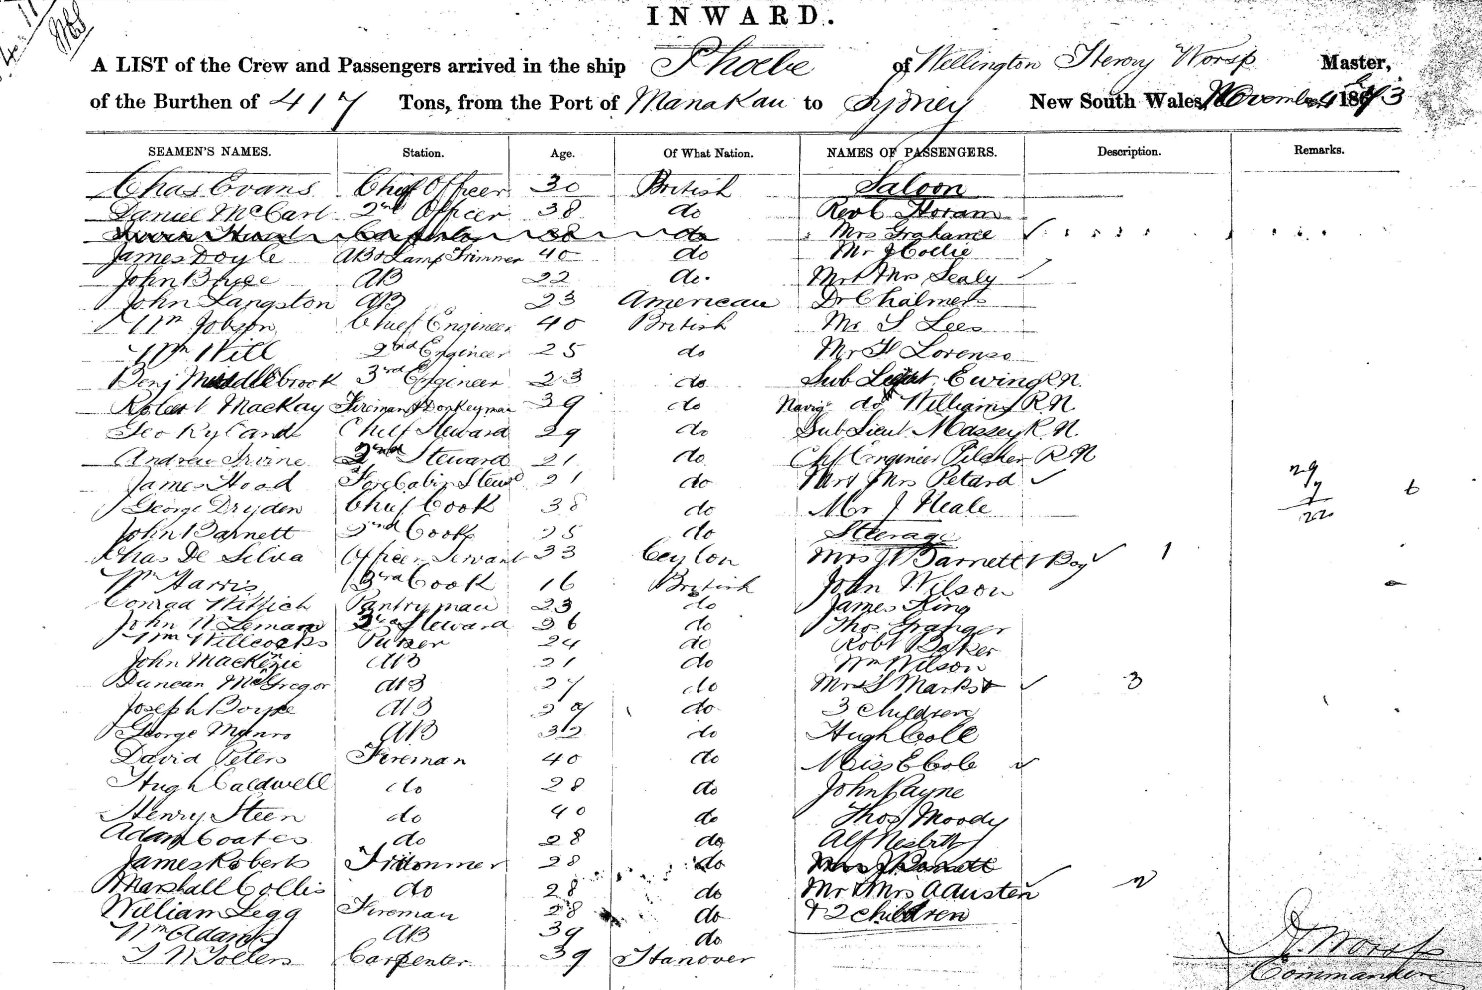 INWARD.
A LIST of the Crew and Passengers arrived in the ship Phoebe of Wellington Henry Worsp Master,
of the Burthen of 417 Tons, from the Port of Manakau to Sydney New South Wales, November 1873
SEAMEN'S NAMES. Station. Age. Of What Nation. NAMES OF PASSENGERS. Description. Remarks.
Chas Evans Chief Officer 30 British Saloon
Daniel McCarl 2nd Officer 38 do Revd Horam
Carpenter 38 do Mrs Grahame
James Doyle AB & Lamp Trimmer 40 do Mr J Collie
John Bryce AB 22 do. Mr & Mrs Sealy
John Langston AB 23 American Dr Chalmers
Wm Jobson Chief Engineer 40 British Mr S Lees
Wm Will 2nd Engineer 25 do Mr H Lorenso
Benj Middlebrook 3rd Engineer 23 do Sub Lieut Ewing R.N.
Robert MacKay Fireman & Donkeyman 39 do Navig do Williams R.N.
Geo Ryland Chief Steward 29 do Sub Lieut Massey R.N.
Andrew Irvine 2nd Steward 21 do Chf Engineer Pilcher R.N
James Hoad Fore Cabin Stewd 21 do Mr & Mrs Petard 29
George Dryden Chief Cook 38 do Mr J Neale 7 6
22
John Barnett 2nd Cook 25 do Steerage
Chas De Silva Officers Servant 33 Ceylon Mrs J Barnett & Boy 1
Wm Harris 3rd Cook 16 British John Wilson
Conrad Wittich Pantryman 23 do James King
John N Leman 3rd Steward 26 do Thos Granger
Wm Willcocks Purser 24 do Robt Baker
John Mackenzie AB 21 do Wm Wilson
Duncan McGregor AB 27 do Mrs S Marks & 3
Joseph Boyce AB 27 do 3 children
George Munro AB 32 do Hugh Coll
David Peters Fireman 40 do Miss E Cole
Hugh Caldwell do 28 do John Payne
Henry Steen do 40 do Thos Moody
Adam Coates do 28 do Alf Nesbitt
James Roberts Trimmer 28 do Mrs J Barnett
Marshall Collis do 28 do Mr & Mrs A Austen 2
William Legg Fireman 28 do & 2 children
Wm Adams AB 39 do
Carpenter 39 Hanover
Worsp
Commander